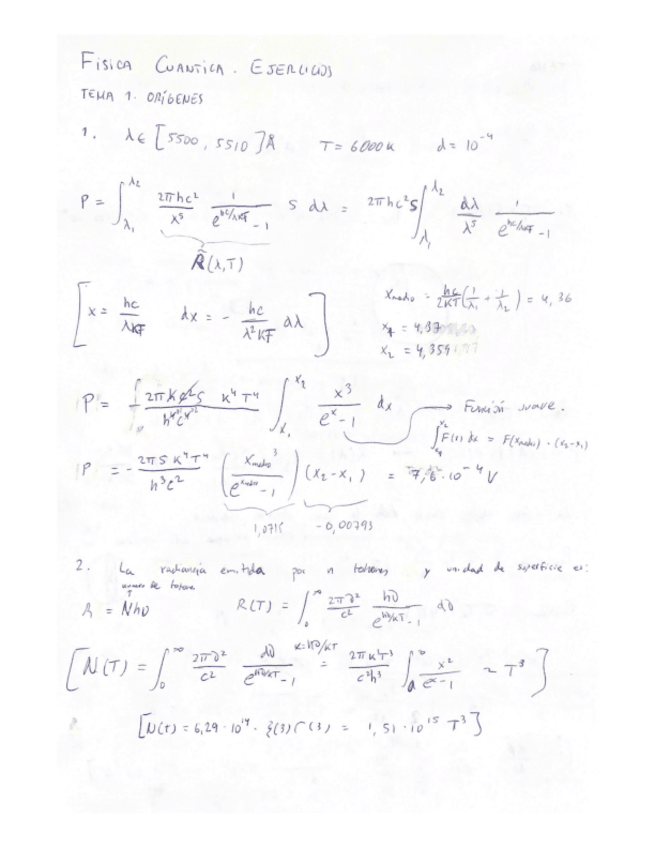 FISICA CUANTICA. EJERCICIOS
TEMA 1. ORÍGENES
1. λ ∈ [5500, 5510] Å T = 6000 K d = 10^-4
P = ∫_{λ1}^{λ2} 2πhc²/λ⁵ 1/(e^{hc/λKT} - 1) S dλ = 2πhc²S ∫_{λ1}^{λ2} dλ/λ⁵ 1/(e^{hc/λKT} - 1)
R̃(λ,T)
[ x = hc/λKT dx = - hc/λ²KT dλ ]
X_medio = hc/2KT (1/λ1 + 1/λ2) = 4,36
x_2 = 4,359
P = - 2πhc²S K⁴T⁴/h⁴c⁴ ∫_{x1}^{x2} x³/(e^x - 1) dx → Función suave.
∫_{x1}^{x2} F(x) dx = F(x_medio) · (x2 - x1)
P = - 2πS K⁴T⁴/h³c² (x_medio³/(e^{x_medio} - 1)) (x2 - x1) = 7,6 · 10^-4 V
1,0715 -0,00793
2. La radiancia emitida por n fotones y unidad de superficie es:
numero de fotones
R = Nhν R(T) = ∫_0^∞ 2πν²/c² hν/(e^{hν/KT} - 1) dν
[ N(T) = ∫_0^∞ 2πν²/c² dν/(e^{hν/KT} - 1) x=hν/KT = 2πK³T³/c²h³ ∫_0^∞ x²/(e^x - 1) ~ T³ ]
[ N(T) = 6,29 · 10^14 · ξ(3) Γ(3) = 1,51 · 10^15 T³ ]